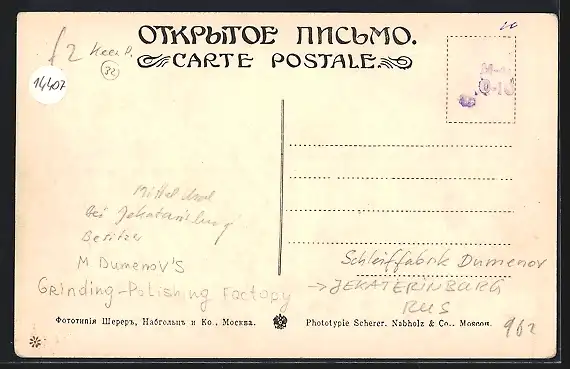 ОТКРЫТОЕ ПИСЬМО.
CARTE POSTALE.
12
32
14407
bei Jekatarinburg
Besitzer
M DUMENOV'S
Grinding-Polishing Factory
Schleiffabrik Dumenov
→ JEKATERINBURG
RUS
962
Фототипія Шереръ, Набгольцъ и Ко., Москва.
Phototypie Scherer, Nabholz & Co., Moscou.